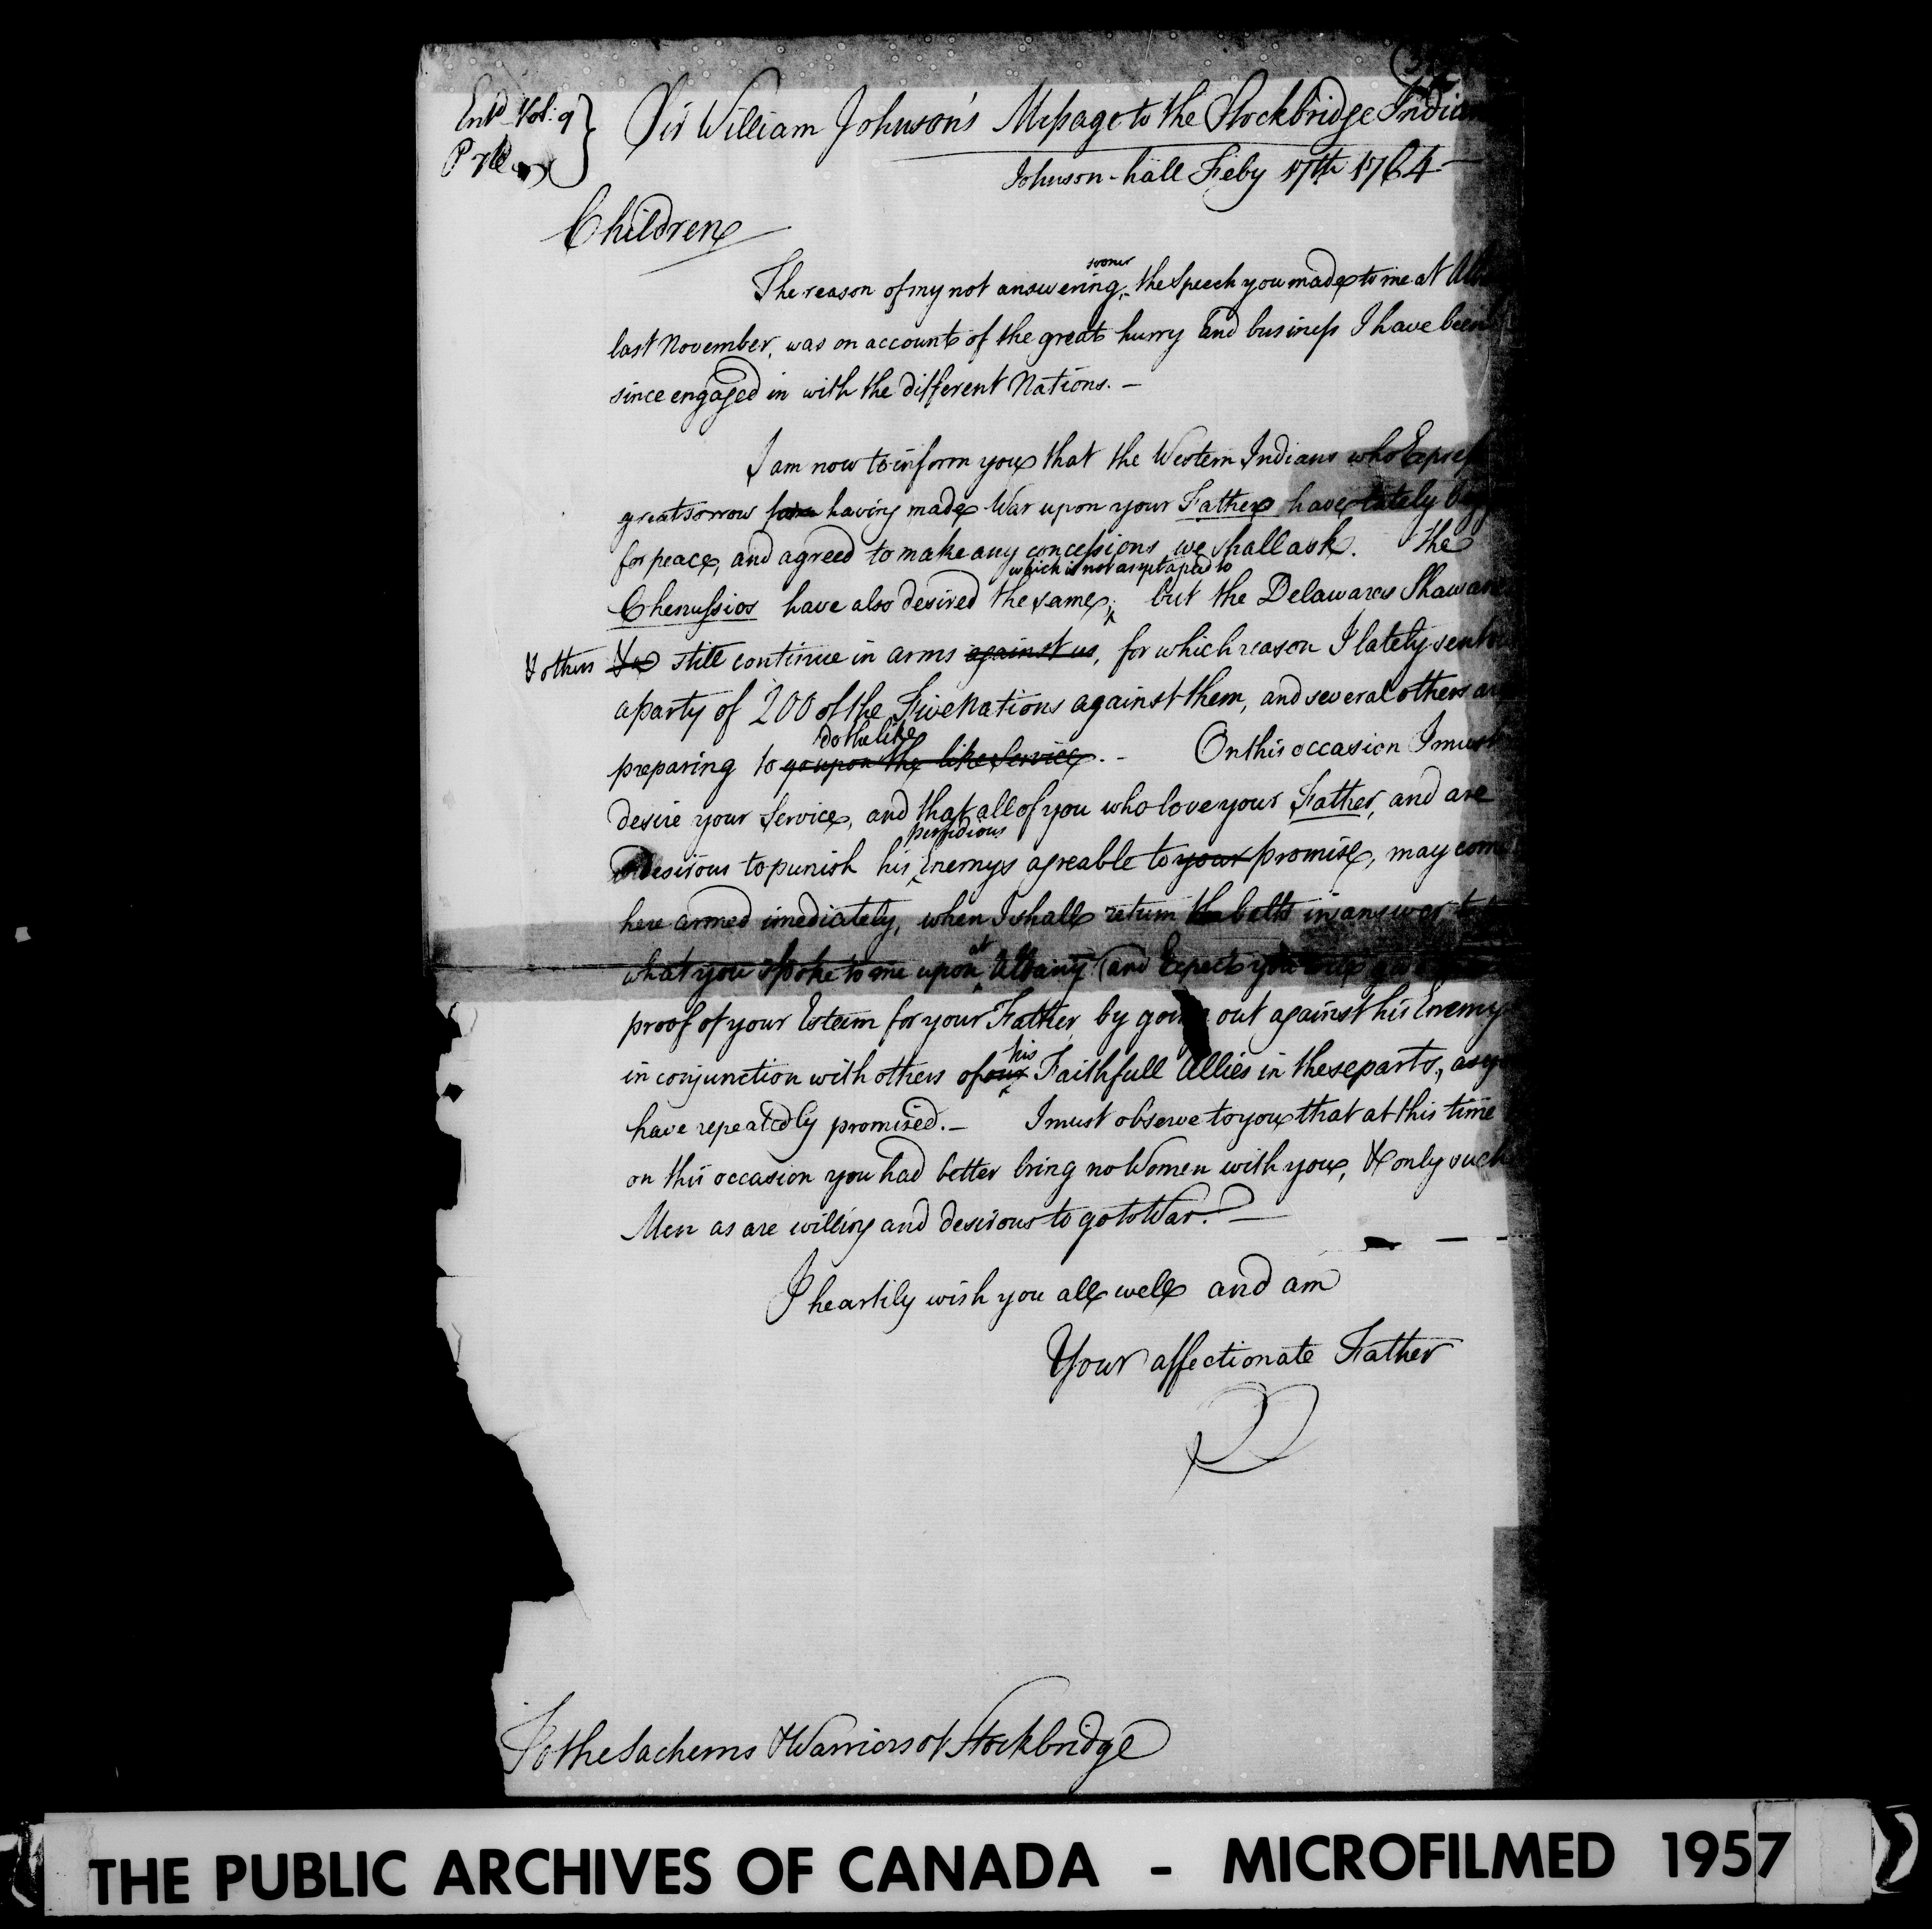 Entd Vol: 9
Sir William Johnson's Message to the Stockbridge Indian
Johnson-hall Feby 17th 1764
Children
The reason of my not answering sooner the Speech you made to me at
last November, was on account of the great hurry and business I have been
since engaged in with the different Nations. —
I am now to inform you that the Western Indians who Express
great sorrow having made War upon your Father have lately
for peace, and agreed to make any concessions we shall ask. The
which is not as yet agreed to
Chenussios have also desired the same; but the Delawares Shawan
& others &ca still continue in arms against us, for which reason I lately sent
a party of 200 of the Five Nations against them, and several others are
do the like
preparing to go upon the like Service. - On this occasion I must
desire your Service, and that all of you who love your Father, and are
perfidious
desirous to punish his Enemys agreable to your promise, may come
here armed imediately, when I shall return the belts in answer to
what you spoke to me upon at Albany (and Expect you
proof of your Esteem for your Father by going out against his Enemy
his
in conjunction with others of our Faithfull Allies in these parts, as
have repeatedly promised. — I must observe to you that at this time
on this occasion you had better bring no Women with you, & only such
Men as are willing and desirous to go to War. —
I heartily wish you all well and am
Your affectionate Father
To the Sachems & Warriors of Stockbridge
THE PUBLIC ARCHIVES OF CANADA - MICROFILMED 1957